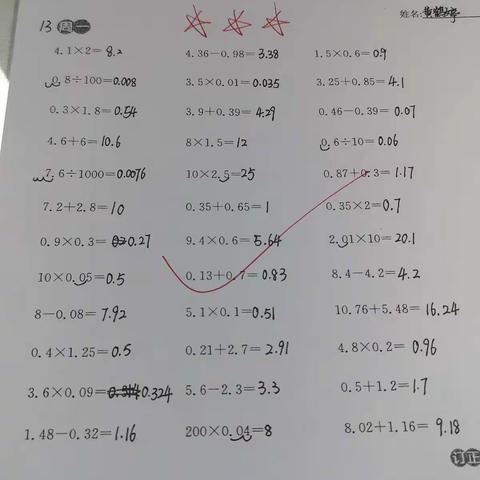 13 周一
姓名:
4.1×2=8.2 4.36−0.98=3.38 1.5×0.6=0.9
0.8÷100=0.008 3.5×0.01=0.035 3.25+0.85=4.1
0.3×1.8=0.54 3.9+0.39=4.29 0.46−0.39=0.07
4.6+6=10.6 8×1.5=12 0.6÷10=0.06
7.6÷1000=0.0076 10×2.5=25 0.87+0.3=1.17
7.2+2.8=10 0.35+0.65=1 0.35×2=0.7
0.9×0.3=0.27 9.4×0.6=5.64 2.01×10=20.1
10×0.05=0.5 0.13+0.7=0.83 8.4−4.2=4.2
8−0.08=7.92 5.1×0.1=0.51 10.76+5.48=16.24
0.4×1.25=0.5 0.21+2.7=2.91 4.8×0.2=0.96
3.6×0.09=0.324 5.6−2.3=3.3 0.5+1.2=1.7
1.48−0.32=1.16 200×0.04=8 8.02+1.16=9.18
订正